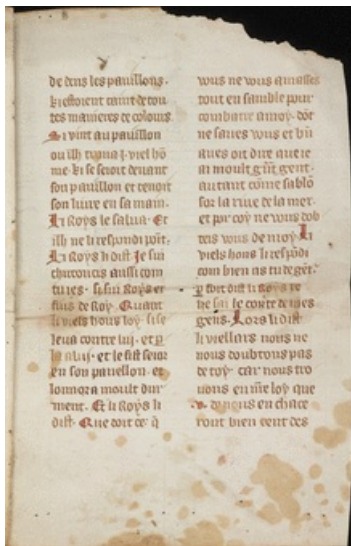 de dens les pauillons.
ki estoient taint de tou
tes manieres de colours.
Si vint au pauillon
ou ilh troua .j. viel hō
me. ki se seoit deuant
son pauillon et tenoit
son liure en sa main.
Li Roys le salua. Et
ilh ne li respondi pōt.
Li Roys li dist Je sui
aussi com
tu ies. si sui Roys et
fius de Roy. Quant
li viels hons loy. si se
leua contre lui. et
et le fist seoir
en son pauellon. et
lonnora moult dur
ment. Et li Roys li
dist. Que doit ce. q̄
vous ne vous amasses
tout en samble pour
combatre a moy. dōt
ne saues vous et bn̄
aues oit dire que ie
ai moult gn̄t gent.
autant cōme sablō
sor la riue de la mer.
et por coy ne vous dob
teis vous de moy. Li
viels hons li respōdi
com bien as tu de gēt.
dist li Roys ie
ne sai le conte de mes
gens. Lors li dist
li viellars nous ne
nous doubtons pas
de toy. car nous tro
uons en nr̄e loy que
.v. de nous en chace
ront bien cent des